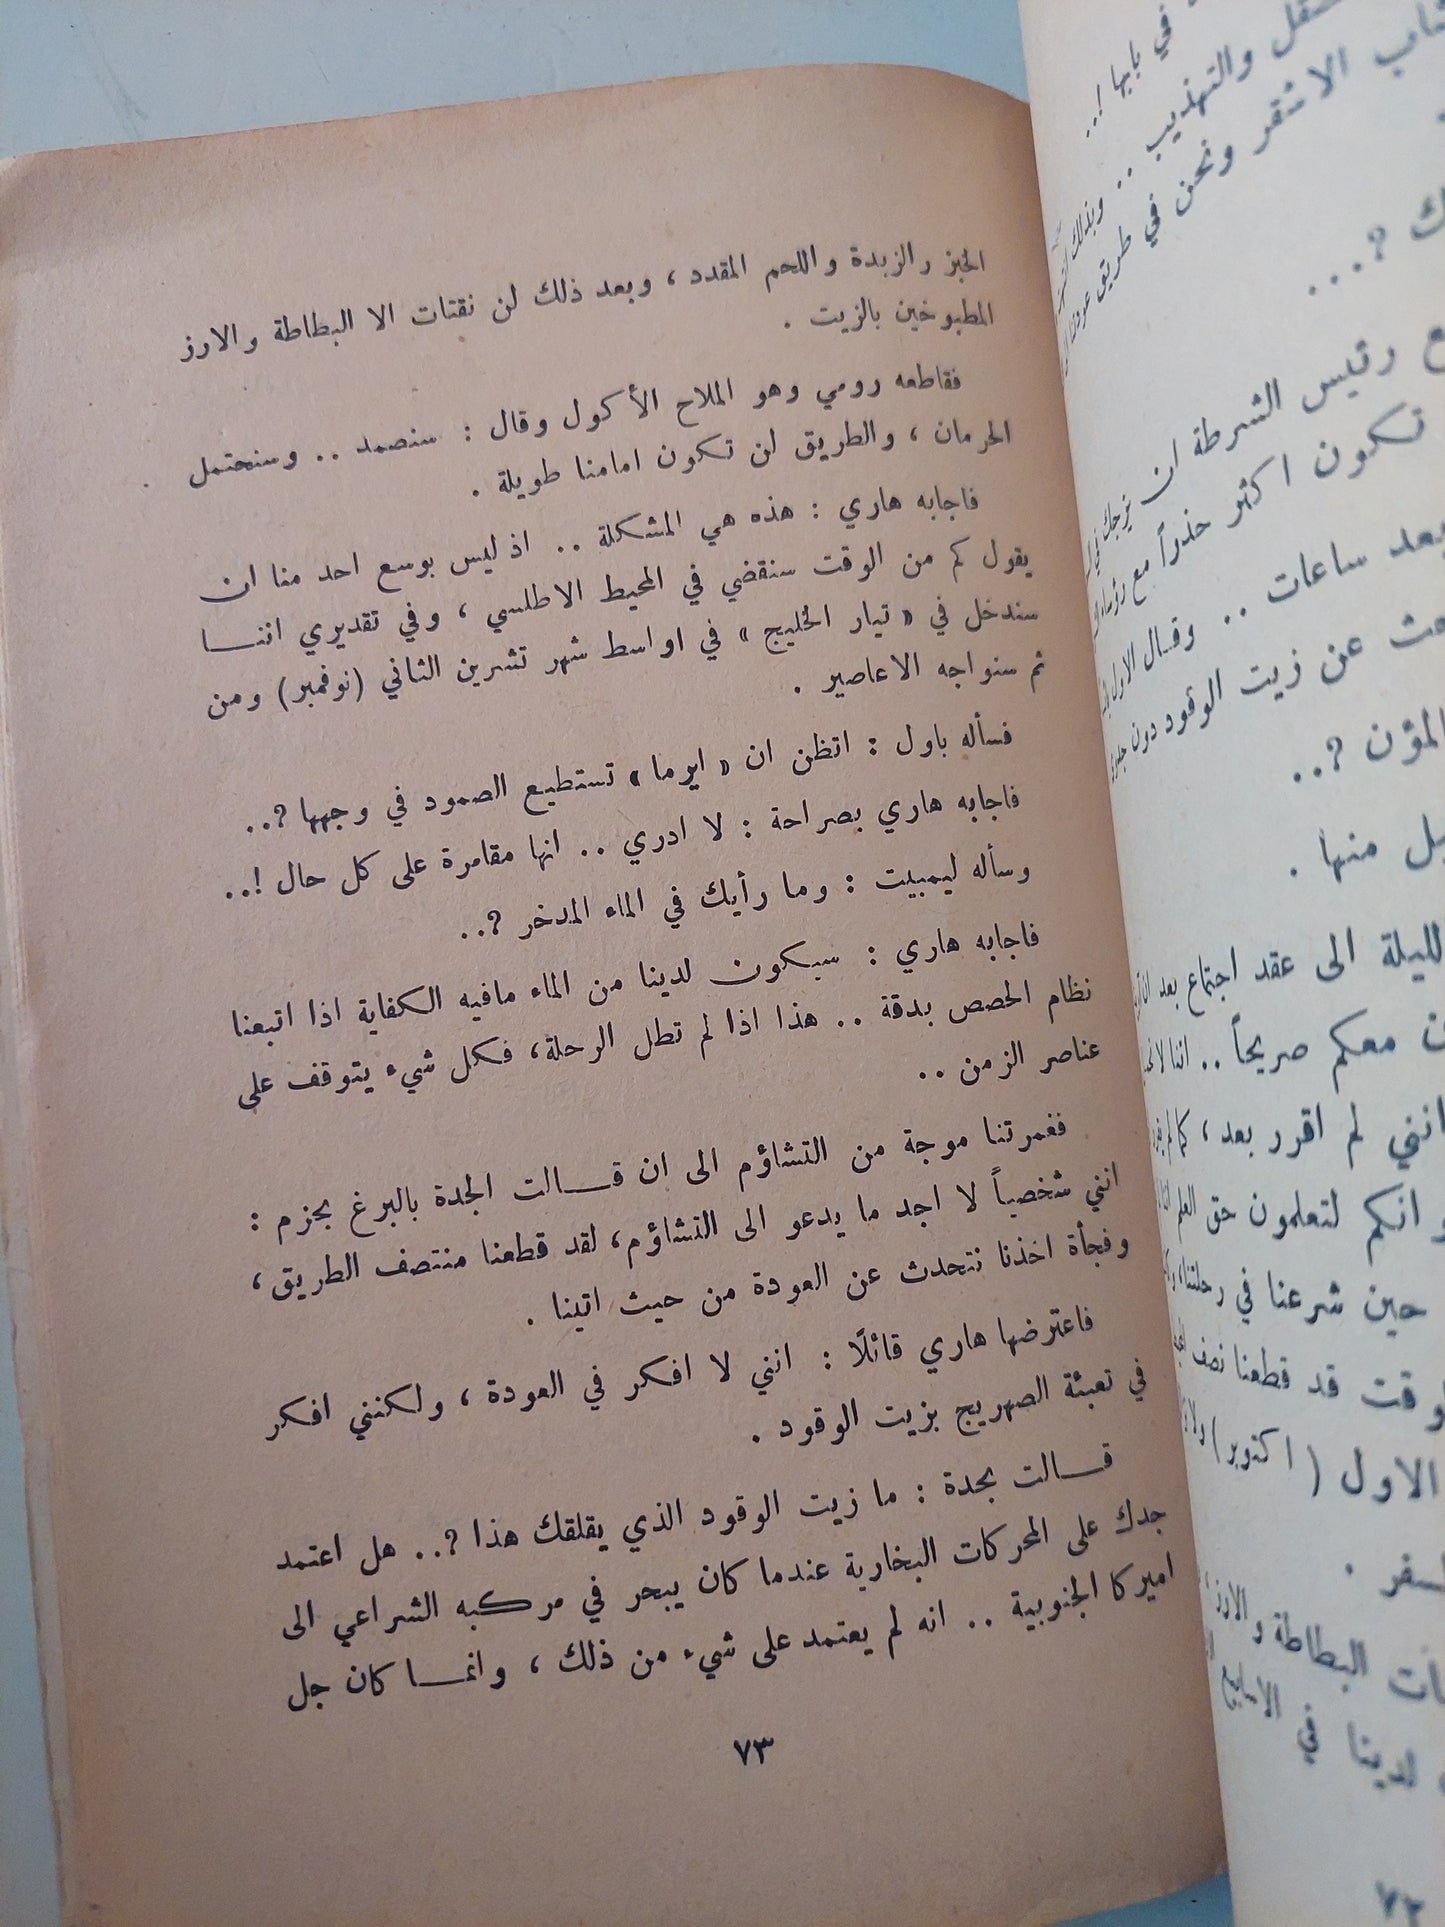 في بابها !..
والتهذيب .. وبذلك
الاشقر ونحن في طريق عودتنا
ك ?...
ع رئيس الشرطة ان
تكون اكثر حذراً مع
بعد ساعات .. وقال الاول
عن زيت الوقود دون
المؤن ?..
منها .
الليلة الى عقد اجتماع بعد
معكم صريحاً .. اننا
انني لم اقرر بعد ، كما لم
و انكم لتعلمون حق العلم
حين شرعنا في رحلتنا
قد قطعنا نصف
الاول ( اكتوبر ) ولا
البطاطة والارز
لدينا في الاسابيع
٧٢
الخبز والزبدة واللحم المقدد ، وبعد ذلك لن نقتات الا البطاطة والارز
المطبوخين بالزيت .
فقاطعه رومي وهو الملاح الأكول وقال : سنصمد .. وسنحتمل
الحرمان ، والطريق لن تكون امامنا طويلة .
فاجابه هاري : هذه هي المشكلة .. اذ ليس بوسع احد منا ان
يقول كم من الوقت سنقضي في المحيط الاطلسي ، وفي تقديري اننــا
سندخل في « تيار الخليج » في اواسط شهر تشرين الثاني (نوفمبر) ومن
ثم سنواجه الاعاصير .
فسأله باول : اتظن ان « ايرما » تستطيع الصمود في وجهها ?..
فاجابه هاري بصراحة : لا ادري .. انها مقامرة على كل حال !..
وسأله ليمبيت : وما رأيك في الماء المدخر ?..
فاجابه هاري : سيكون لدينا من الماء مافيه الكفاية اذا اتبعنا
نظام الحصص بدقة .. هذا اذا لم تطل الرحلة، فكل شيء يتوقف على
عناصر الزمن ..
فغمرتنا موجة من التشاؤم الى ان قــالت الجدة بالبرغ بجزم :
انني شخصياً لا اجد ما يدعو الى التشاؤم، لقد قطعنا منتصف الطريق ،
وفجأة اخذنا نتحدث عن العودة من حيث اتينا .
فاعترضها هاري قائلًا : انني لا افكر في العودة ، ولكنني افكر
في تعبئة الصهريج بزيت الوقود .
قــالت بجدة : ما زيت الوقود الذي يقلقك هذا ?.. هل اعتمد
جدك على المحركات البخارية عندما كان يبحر في مركبه الشراعي الى
اميركا الجنوبية .. انه لم يعتمد على شيء من ذلك ، وانمــا كان جل
٧٣